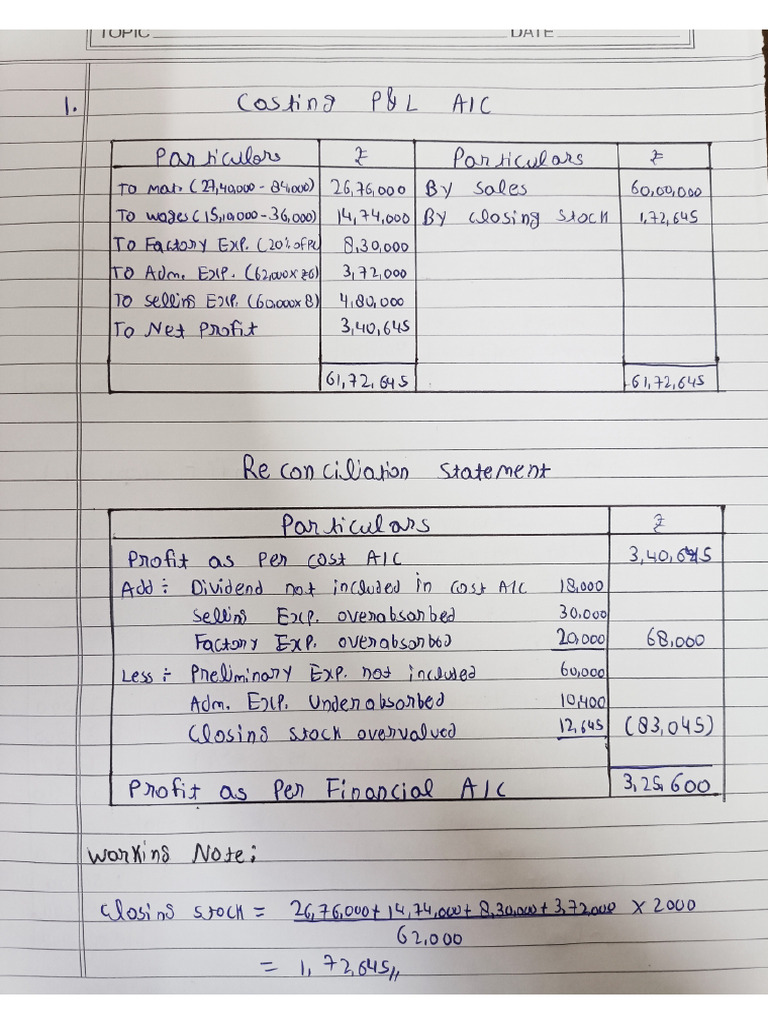 TOPIC DATE
1. Costing P&L A/C
Particulars ₹ Particulars ₹
To mat. (27,40,000 - 84,000) 26,76,000 By sales 60,00,000
To wages (15,10,000 - 36,000) 14,74,000 By closing stock 1,72,645
To Factory Exp. (20% of PC) 8,30,000
To Adm. Exp. (62,000 x ₹6) 3,72,000
To Selling Exp. (60,000 x 8) 4,80,000
To Net Profit 3,40,645
61,72,645 61,72,645
Reconciliation statement
Particulars ₹
Profit as per cost A/C 3,40,645
Add :- Dividend not included in cost A/C 18,000
Selling Exp. overabsorbed 30,000
Factory Exp. overabsorbed 20,000 68,000
Less :- Preliminary Exp. not included 60,000
Adm. Exp. Underabsorbed 10,400
Closing stock overvalued 12,645 (83,045)
Profit as per Financial A/C 3,25,600
Working Note:
Closing stock = 26,76,000 + 14,74,000 + 8,30,000 + 3,72,000 x 2000
62,000
= 1,72,645//